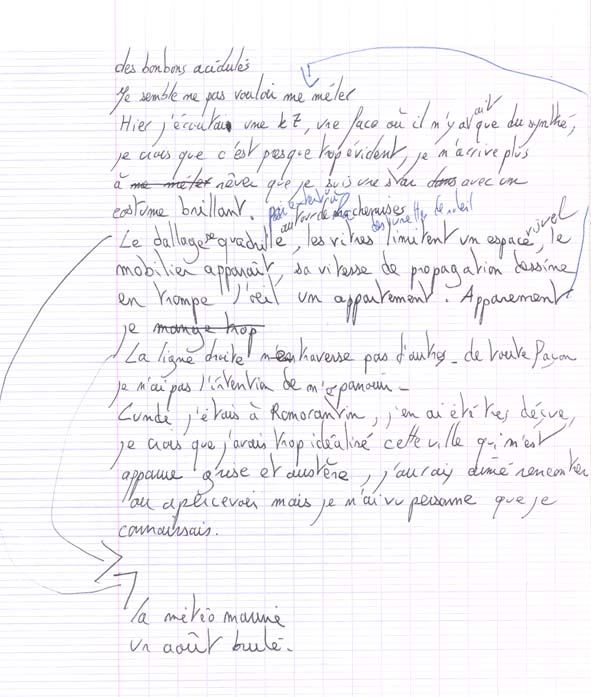 des bonbons acidulés
Je semble ne pas vouloir me mêler
Hier j'écoutais une k7, une face où il n'y avait que du synthé,
je crois que c'est presque trop évident, je n'arrive plus
à me mêler rêver que je suis une star dans avec un
costume brillant. autour de ma chemises des lunettes de soleil
Le dallage se quadrille, les vitres limitent un espace visuel, le
mobilier apparaît, sa vitesse de propagation dessine
en trompe l'oeil un appartement. Apparement
je mange trop
La ligne droite n'en traverse pas d'autres - de toute façon
je n'ai pas l'intention de m'épanouir -
Lundi j'étais à Romorantin, j'en ai été très déçue,
je crois que j'avais trop idéalisé cette ville qui m'est
apparue grise et austère, j'aurais aimé rencontrer
ou aplicevoir mais je n'ai vu personne que je
connaissais.
la météo marine
un août brulé.